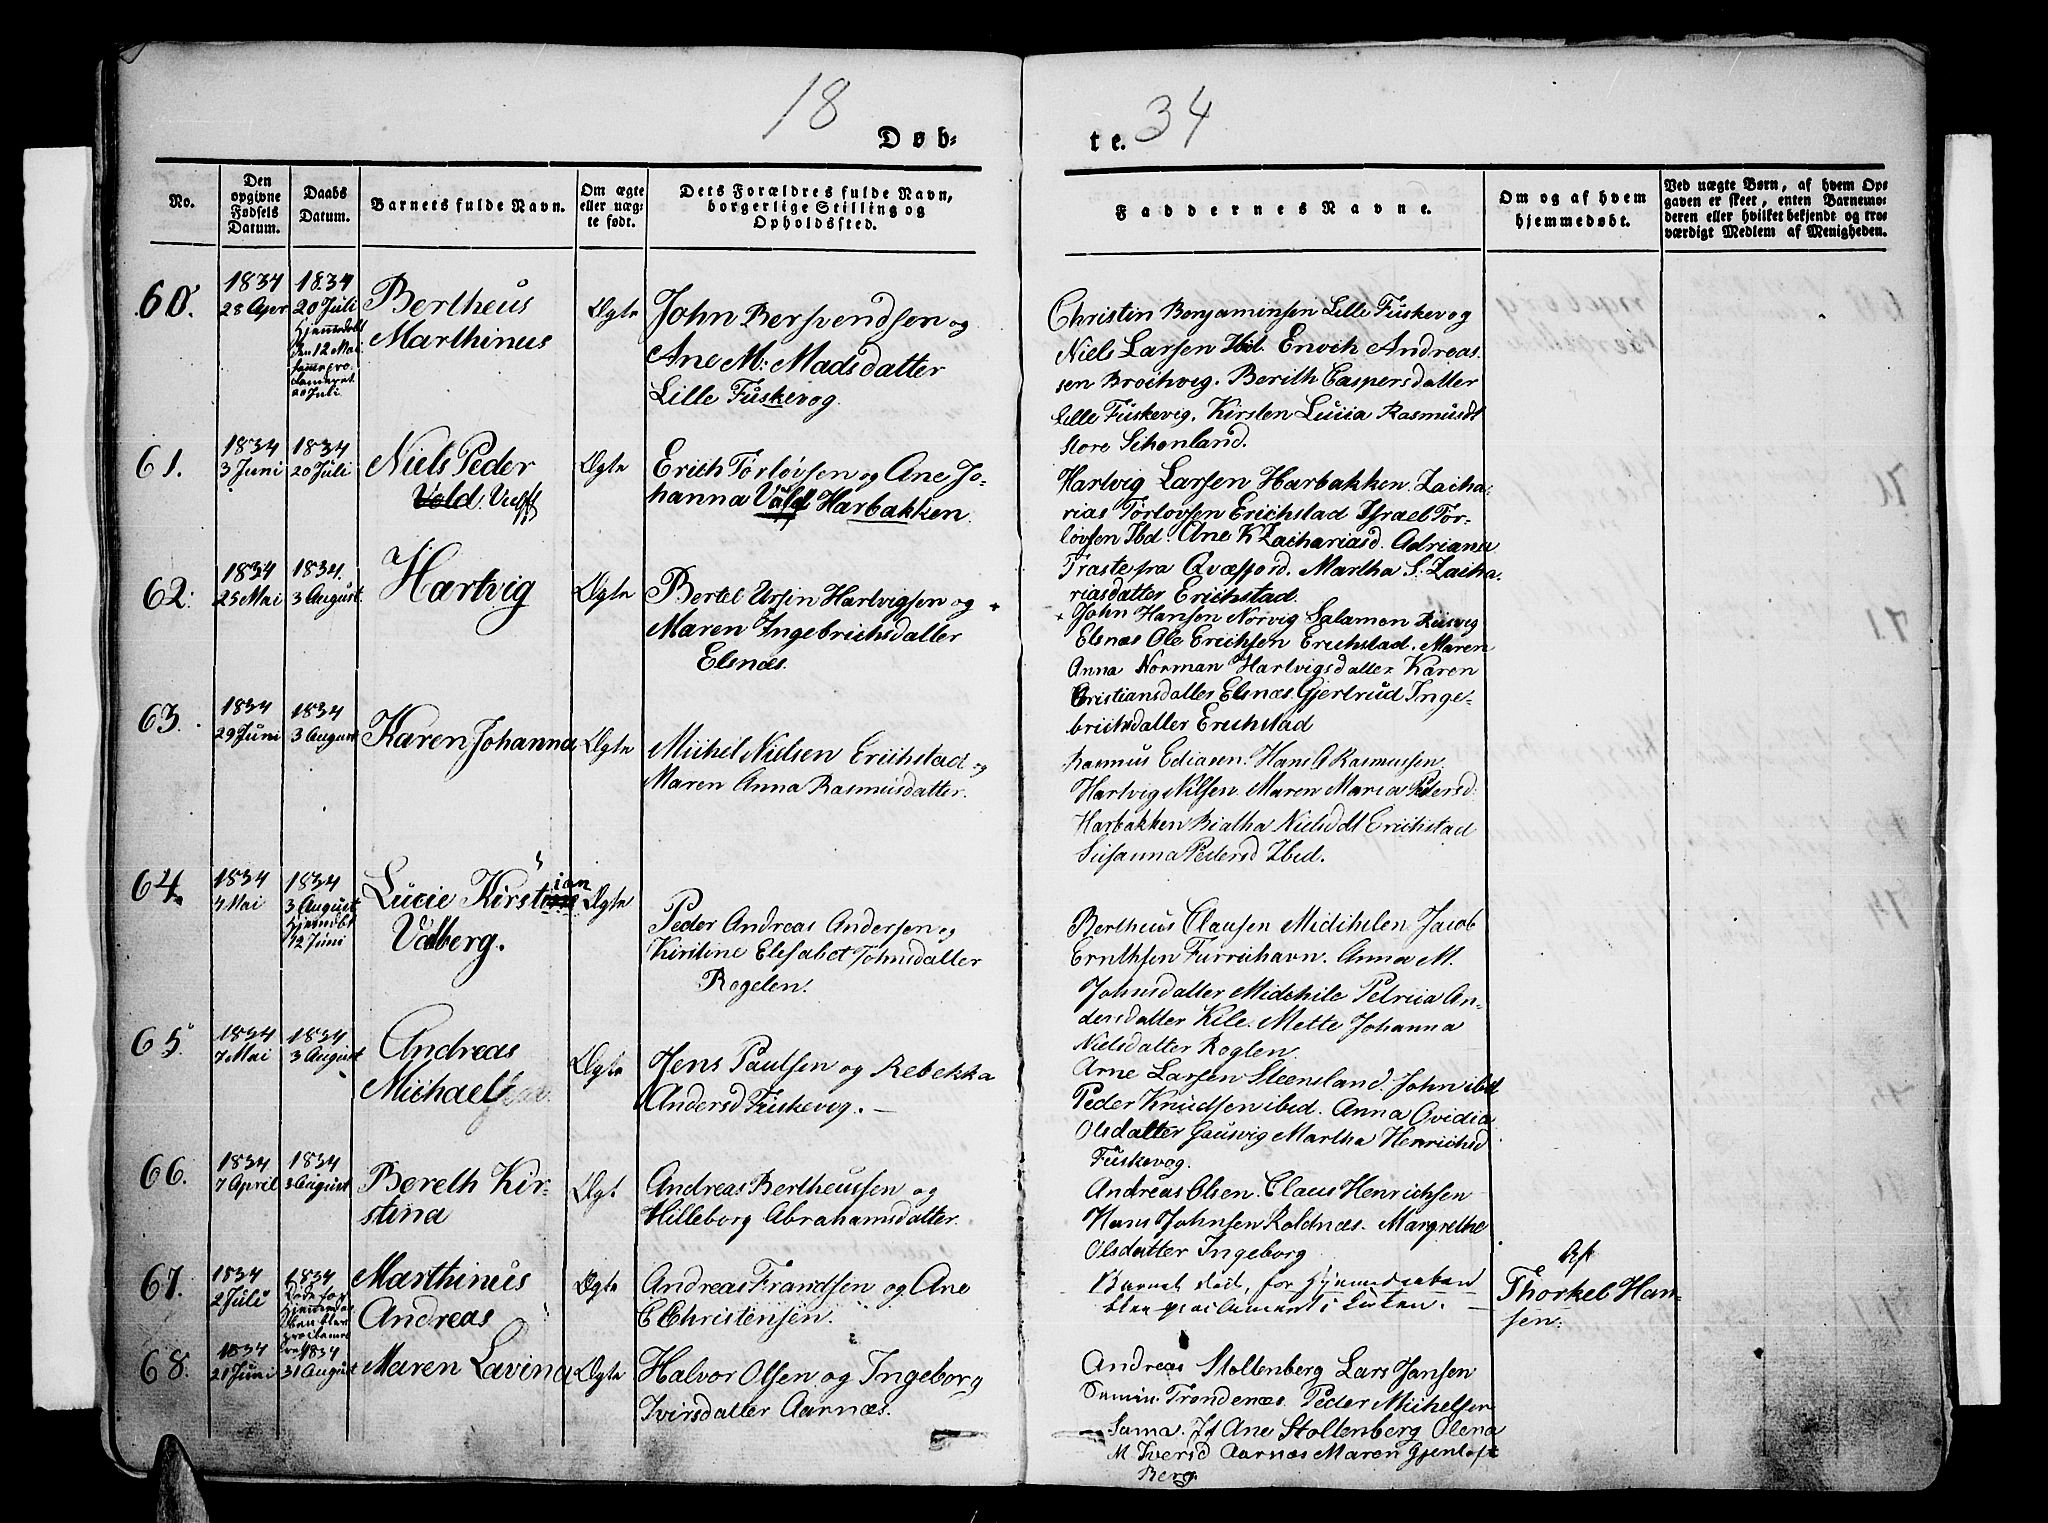 18 34
Døb-
te.
No.
Den
opgivne
Fødsels
Datum.
Daabs
Datum.
Barnets fulde Navn.
Om ægte
eller uæg-
te født.
Dets Forældres fulde Navn,
borgerlige Stilling og
Opholdssted.
Faddernes Navne.
Om og af hvem
hjemmedøbt.
Ved uægte Børn, af hvem Op-
gaven er skeet, enten Barnemo-
deren eller hvilket bekjendt og tro-
værdigt Medlem af Menigheden.
60.
1834
28 Apr
1834
20 Juli
Hjemmedøbt
den 12 Mai
20 Juli
Bertheus
Marthinus
Ægte
John Bersvendsen og
Ane M: Madsdatter
Lille Fuskevog
Christin Benjaminsen Lille Fuskevog
Niels Larsen Ibd. Envik Andreas
sen Brochvig. Berith Caspersdatter
Lille Fuskevig. Kirsten Lucia Rasmusdt
store Sihonland.
61.
1834
3 Juni
1834
20 Juli
Niels Peder
Vold.
Ægte
Erich Torlovsen og Ane Jo-
hanna Harbakken.
Hartvig Larsen Harbakken. Zacha-
rias Torlovsen Erichstad Israel Tor-
lovsen Ibd. Ane K Zachariasd. Adriana
Traste fra Qvæfjord. Martha S. Zacha-
riasdatter Erichstad.
62.
1834
25 Mai
1834.
3 August
Hartvig
Ægte
Bertel Ursin Hartvigsen og +
Maren Ingebrichsdatter
Elsnæs.
+ John Hansen Norvig Salamon
Elsnæs Ole Erichsen Erichstad. Maren
Anna Norman Hartvigsdatter Karen
Christiansdatter Elsnæs. Gjertrud Inge-
brichsdatter Erichstad
63.
1834
29 Juni
1834
3 August
Karen Johanna
Ægte
Michel Nielsen Erichstad og
Maren Anna Rasmusdatter.
Rasmus Ediasen. Hans A Rasmussen.
Hartvig Nilsen. Maren Maria Pedersd:
Harbakken Beatha Nielsdt Erichstad
Susanna Pedersd Ibid.
64.
1834
4 Mai
1834
3 August
Hjemdøbt
12 Juni
Lucie Kirstian
Vedberg.
Ægte
Peder Andreas Andersen og
Kirstine Elesabet Johnsdatter
Rogelen.
Bertheus Clausen Midihelen Jacob
Ernthsen Furrehavn. Anna M.
Johnsdatter Midehile Petricia An-
dersdatter Kile. Mette Johanna
Nielsdatter Roglen.
65.
1834
7 Mai
1834
3 August
Andreas
Michael
Ægte
Jens Paulsen og Rebekka
Andersd Fuskevig. —
Arne Larsen Steensland. John ibd
Peder Knudsen ibid. Anna Ovidia
Olsdatter Gausvig Martha Henrichsd
Fuskevog.
66.
1834
7 April
1834
3 August
Bereth Kir-
stina
Ægt
Andreas Bertheussen og
Hilleborg Abrahamsdatter
Andreas Olsen. Claus Henrichsen
Hans Johnsen Roldnæs. Margrethe
Olsdatter Ingeborg
67.
1834
2 Juli
1834
Marthinus
Andreas
Ægte
Andreas Frandsen og Ane
C Christensen.
Barnet død, for Hjemmedaaben
blev proclameret i Kirken. —
Af
Thorkel Han-
sen.
68.
1834
21 Juni
1834
31 August
Maren Lavina
Ægte
Halvor Olsen og Ingeborg
Ivirsdatter Aarnæs.
Andreas Stoltenberg Lars Jansen
Trondenæs. Peder Michelsen
Sama. Jd Ane Stoltenberg Olena
M. Iversd Aarnæs Maren Gjenloft
Berg.